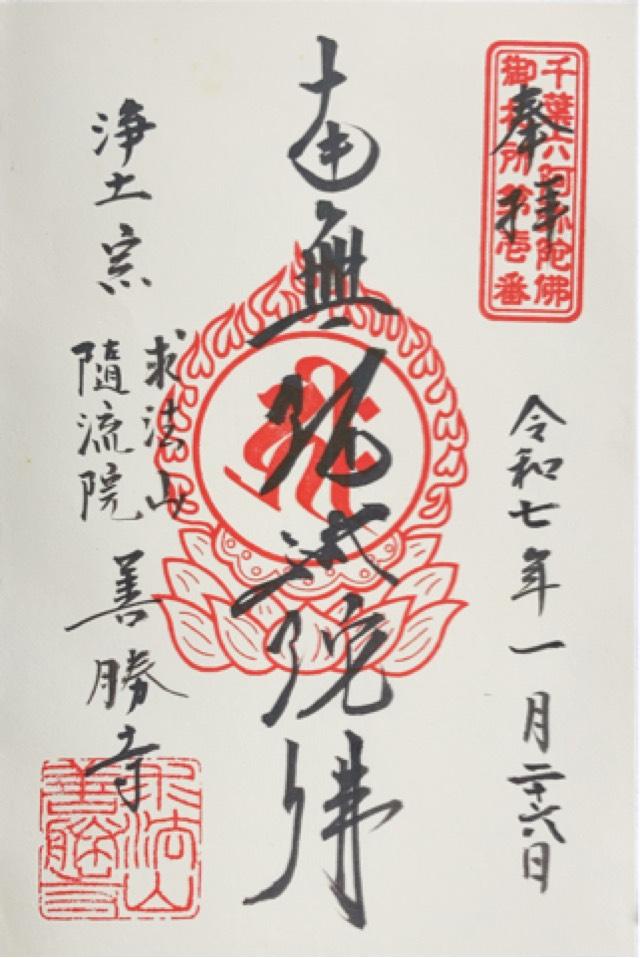 奉拝
千葉六阿弥陀佛
御札所第壱番
令和七年一月二十六日
南無阿弥陀佛
浄土宗
求法山
随流院
善勝寺
求法山
善勝寺